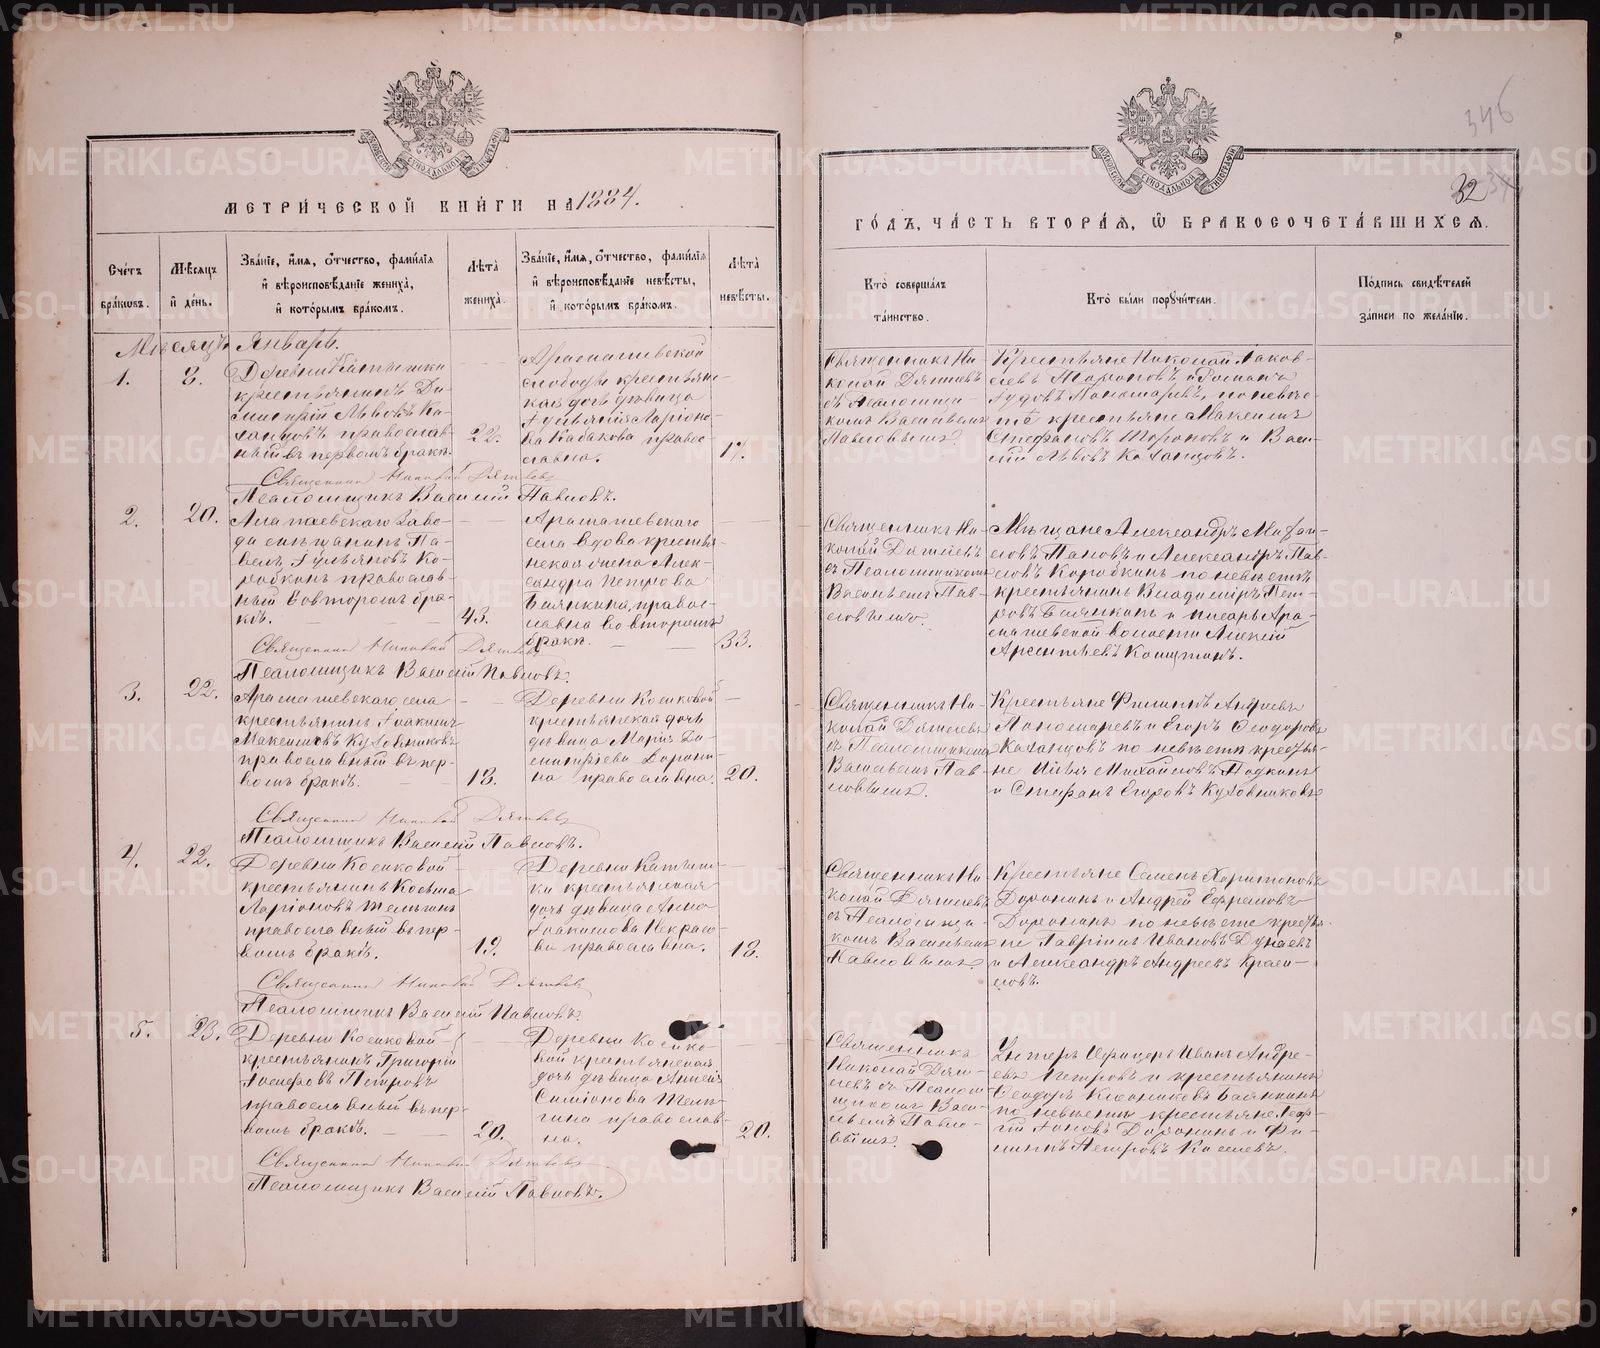 МЕТРИЧЕСКОЙ КНИГИ НА 1884.
Счетъ
браковъ.
Мѣсяцъ
и день.
Званіе, имя, отчество, фамилія
и вѣроисповѣданіе жениха,
и которымъ бракомъ.
Лѣта
жениха.
Званіе, имя, отчество, фамилія
и вѣроисповѣданіе невѣсты,
и которымъ бракомъ.
Лѣта
невѣсты.
Мѣсяцъ Январь.
1.
8.
Деревни Катышки
крестьянинъ Ди-
митрій Львовъ Ка-
занцовъ православ-
ный въ первомъ бракѣ.
22.
Арамашевской
слободы крестьянс-
кая дочь дѣвица
Іуліанія Ларіоно-
ва Кабакова правос-
лавна.
17.
Священникъ Николай
Псаломщикъ Василій Павловъ.
2.
20.
Алапаевскаго Заво-
да мѣщанинъ Па-
велъ Іульяновъ Ко-
робкинъ православ-
ный вовторомъ бра-
кѣ.
43.
Арамашевскаго
села вдова крестья-
нская жена Алек-
сандра Петрова
Белянкина, правос-
лавна во второмъ
бракѣ.
33.
Священникъ Николай
Псаломщикъ Василій Павловъ.
3.
22.
Арамашевскаго села
крестьянинъ Іоакимъ
Максимовъ Кузовниковъ
православный въ пер-
вомъ бракѣ.
18.
Деревни Косиковой
крестьянская дочь
дѣвица Марія Ди-
митріева Дорони-
на православна.
20.
Священникъ Николай
Псаломщикъ Василій Павловъ.
4.
22.
Деревни Косиковой
крестьянинъ Косьма
Ларіоновъ Телыгинъ
православный въ пер-
вомъ бракѣ.
19.
Деревни Катыш-
ки крестьянская
дочь дѣвица Анна
Іоакимова Некрасо-
ва православна.
18.
Священникъ Николай
Псаломщикъ Василій Павловъ.
5.
23.
Деревни Косиковой
крестьянинъ Григорій
Іосифовъ Петровъ
православный въ пер-
вомъ бракѣ.
20.
Деревни Косико-
вой крестьянская
дочь дѣвица
Симіонова Телы-
гина православ-
на.
20.
Священникъ Николай
Псаломщикъ Василій Павловъ.
346
32
ГОДЪ, ЧАСТЬ ВТОРАЯ, Ѿ БРАКОСОЧЕТАВШИХСЯ.
Кто совершалъ
таинство.
Кто были поручители.
Подпись свидѣтелей
записи по желанію.
Священникъ Ни-
колай
съ Псаломщи-
комъ Васильемъ
Павловымъ.
Крестьяне Николай Іаков-
левъ Тороповъ и Романъ
Іудовъ Пономаревъ, по невѣс-
тѣ крестьяне Максимъ
Стефановъ Тороповъ и Васи-
лій Львовъ Казанцовъ.
Священникъ Ни-
колай
съ Псаломщикомъ
Васильемъ Пав-
ловымъ.
Мѣщане Александръ Михаи-
ловъ Пановъ и Александръ Пав-
ловъ Коробкинъ по невѣстѣ
крестьянинъ Владиміръ Пет-
ровъ Белянкинъ и писарь Ара-
машевской волости Алексій
Арсентьевъ
Священникъ Ни-
колай
съ Псаломщикомъ
Васильемъ Пав-
ловымъ.
Крестьяне Филиппъ Андреевъ
Пономаревъ и Егоръ Ѳеодоровъ
Казанцовъ по невѣстѣ крестья-
не Илья Михайловъ
и Стефанъ Егоровъ Кузовниковъ
Священникъ Ни-
колай
съ Псаломщи-
комъ Васильемъ
Павловымъ.
Крестьяне Семенъ Харитоновъ
Доронинъ и Андрей Ефремовъ
Доронинъ по невѣстѣ крестья-
не Гавріилъ Ивановъ Дунаевъ
и Александръ Андреевъ Краси-
ловъ.
Священникъ
Николай
съ Псалом-
щикомъ Васи-
льемъ Павло-
вымъ.
Унтеръ Офицеръ Иванъ Андре-
евъ Петровъ и крестьянинъ
Ѳеодоръ Белянкинъ
по невѣстѣ крестьяне
Доронинъ и Фи-
липпъ Петровъ
METRIKI.GASO-URAL.RU